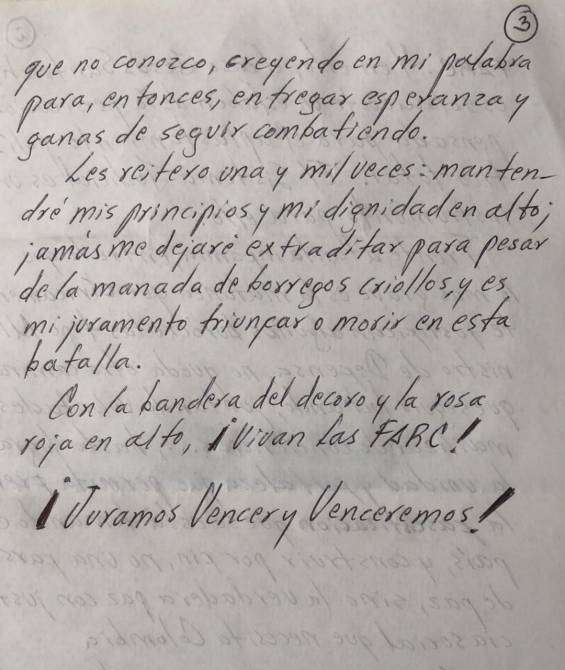 3
que no conozco, creyendo en mi palabra
para, entonces, entregar esperanza y
ganas de seguir combatiendo.
Les reitero una y mil veces: manten-
dré mis principios y mi dignidad en alto;
jamás me dejaré extraditar para pesar
de la manada de borregos criollos, y es
mi juramento triunfar o morir en esta
batalla.
Con la bandera del decoro y la rosa
roja en alto, ¡Vivan Las FARC!
¡Juramos Vencer y Venceremos!